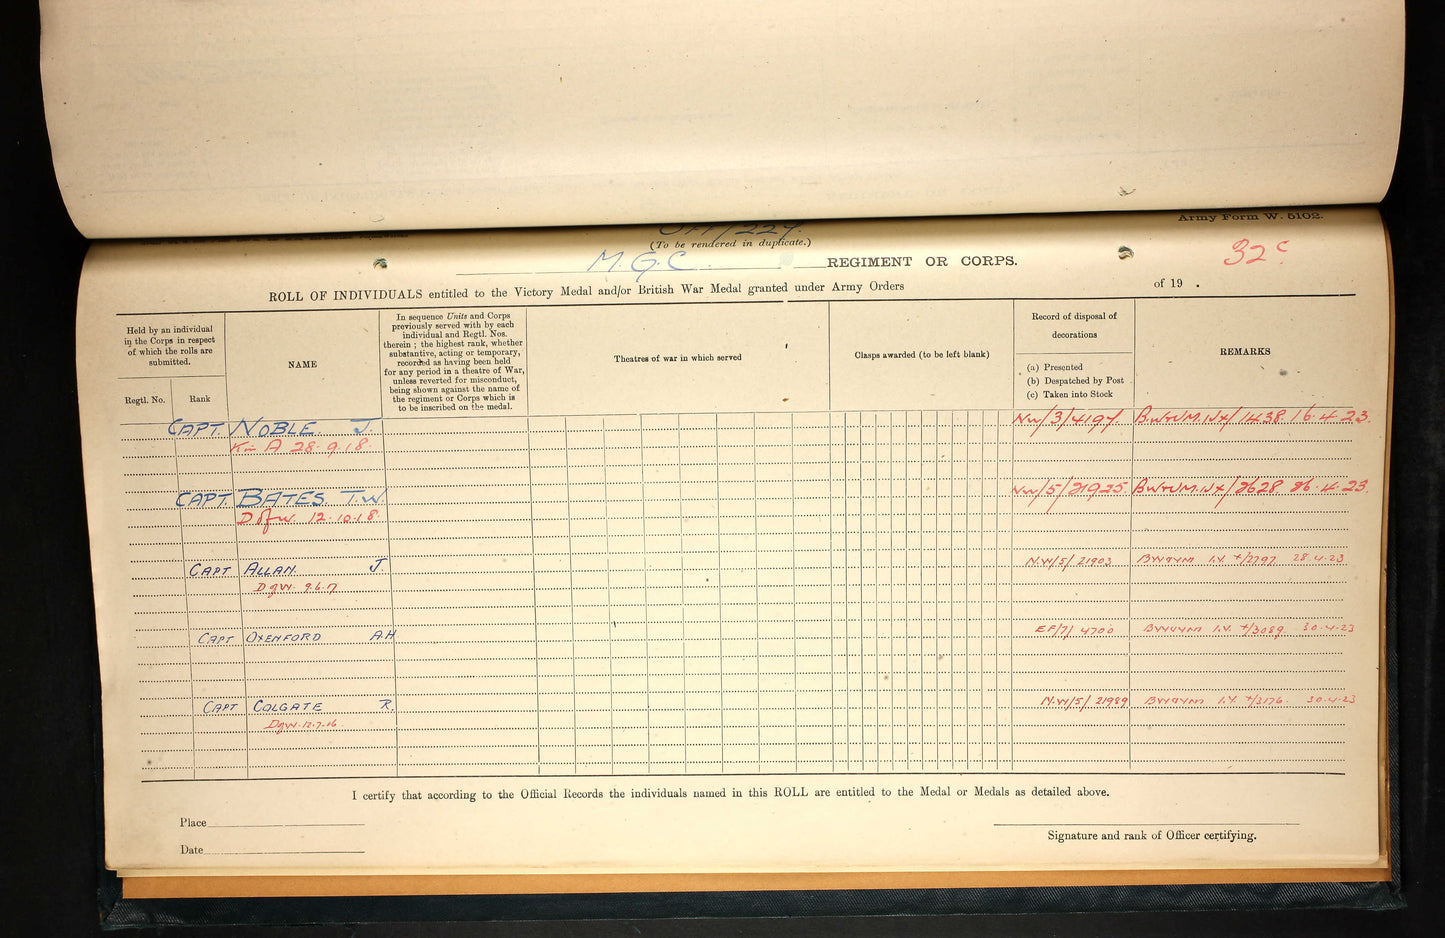 Army Form W. 5102.
Off/227.
(To be rendered in duplicate.)
M.G.C. REGIMENT OR CORPS.
32c
ROLL OF INDIVIDUALS entitled to the Victory Medal and/or British War Medal granted under Army Orders of 19 .
Held by an individual
in the Corps in respect
of which the rolls are
submitted.
Regtl. No.
Rank
NAME
In sequence Units and Corps
previously served with by each
individual and Regtl. Nos.
therein; the highest rank, whether
substantive, acting or temporary,
recorded as having been held
for any period in a theatre of War,
unless reverted for misconduct,
being shown against the name of
the regiment or Corps which is
to be inscribed on the medal.
Theatres of war in which served
Clasps awarded (to be left blank)
Record of disposal of
decorations
(a) Presented
(b) Despatched by Post
(c) Taken into Stock
REMARKS
CAPT. NOBLE. J. NW/3/4197. BW&VM.IVX/1438. 16.4.23.
K in A 28.9.18.
CAPT. BATES. T.W. NW/5/21925 BW&VM.IVX/2628 26.4.23.
D of W. 12.10.18.
CAPT ALLAN. J. N.W/5/21903 BW&VM I.V. X/2797 28.4.23
D of W. 9.6.17
CAPT OXENFORD A H EF/7/4700 BW&VM I.V. X/3089. 30.4.23
CAPT COLGATE R. N.W/5/21989 BW&VM I.V. X/3176. 30.4.23
D of W. 12.7.16.
I certify that according to the Official Records the individuals named in this ROLL are entitled to the Medal or Medals as detailed above.
Place
Signature and rank of Officer certifying.
Date